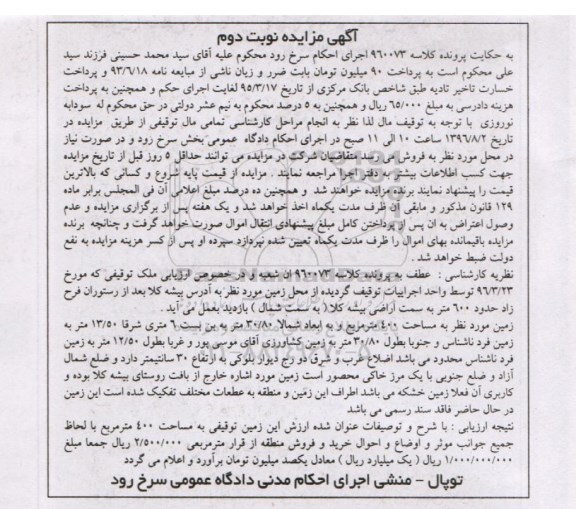 آگهی مزایده نوبت دوم
به حکایت پرونده کلاسه ۹۶۰۰۷۳ اجرای احکام سرخ رود محکوم علیه آقای سید محمد حسینی فرزند سید
علی محکوم است به پرداخت ۹۰ میلیون تومان بابت ضرر و زیان ناشی از مبایعه نامه ۹۳/۶/۱۸ و پرداخت
خسارت تاخیر تادیه طبق شاخص بانک مرکزی از تاریخ ۹۵/۳/۱۷ لغایت اجرای حکم و همچنین به پرداخت
هزینه دادرسی به مبلغ ۶۵/۰۰۰ ریال و همچنین به ۵ درصد محکوم به نیم عشر دولتی در حق محکوم له سودابه
نوروزی با توجه به توقیف مال لذا نظر به انجام مراحل کارشناسی تمامی مال توقیفی از طریق مزایده در
تاریخ ۱۳۹۶/۸/۲ ساعت ۱۰ الی ۱۱ صبح در اجرای احکام دادگاه عمومی بخش سرخ رود و در صورت نیاز
در محل مورد نظر به فروش می رسد متقاضیان شرکت در مزایده می توانند حداقل ۵ روز قبل از تاریخ مزایده
جهت کسب اطلاعات بیشتر به دفتر اجرا مراجعه نمایند . مزایده از قیمت پایه شروع و کسانی که بالاترین
قیمت را پیشنهاد نمایند برنده مزایده خواهند شد و همچنین ده درصد مبلغ اعلامی آن فی المجلس برابر ماده
۱۲۹ قانون مذکور و مابقی آن ظرف مدت یکماه اخذ خواهد شد و یک هفته پس از برگزاری مزایده و عدم
وصول اعتراض به ان پس از پرداختن کامل مبلغ پیشنهادی انتقال اموال صورت خواهد گرفت و چنانچه برنده
مزایده باقیمانده بهای اموال را ظرف مدت یکماه تعیین شده نپردازد سپرده او پس از کسر هزینه مزایده به نفع
دولت ضبط خواهد شد .
نظریه کارشناسی : عطف به پرونده کلاسه ۹۶۰۰۷۳ ان شعبه و در خصوص ارزیابی ملک توقیفی که مورخ
۹۶/۳/۲۳ توسط واحد اجراییات توقیف گردیده از محل زمین مورد نظر به آدرس بیشه کلا بعد از رستوران فرح
زاد حدود ۶۰۰ متر به سمت اراضی بیشه کلا ( به سمت شمال ) بازدید بعمل می آید .
زمین مورد نظر به مساحت ۴۰۰ مترمربع و به ابعاد شمالا ۳۰/۸۰ متر به بن بست ۶ متری شرقا ۱۳/۵۰ متر به
زمین فرد ناشناس و جنوبا بطول ۳۰/۸۰ متر به زمین کشاورزی آقای موسی پور و غربا بطول ۱۲/۵۰ متر به زمین
فرد ناشناس محدود می باشد اضلاع غرب و شرق دو رج دیوار بلوکی به ارتفاع ۳۰ سانتیمتر دارد و ضلع شمال
آزاد و ضلع جنوبی با یک مرز خاکی محصور است زمین مورد اشاره خارج از بافت روستای بیشه کلا بوده و
کاربری آن فعلا زمین خشکه می باشد اطراف این زمین و منطقه به عطعات مختلف تفکیک شده است این زمین
در حال حاضر فاقد سند رسمی می باشد
نتیجه ارزیابی : با شرح و توصیفات عنوان شده ارزش این زمین توقیفی به مساحت ۴۰۰ مترمربع با لحاظ
جمیع جوانب موثر و اوضاع و احوال خرید و فروش منطقه از قرار مترمربعی ۲/۵۰۰/۰۰۰ ریال جمعا مبلغ
۱/۰۰۰/۰۰۰/۰۰۰ ریال ( یک میلیارد ریال ) معادل یکصد میلیون تومان برآورد و اعلام می گردد
توپال - منشی اجرای احکام مدنی دادگاه عمومی سرخ رود